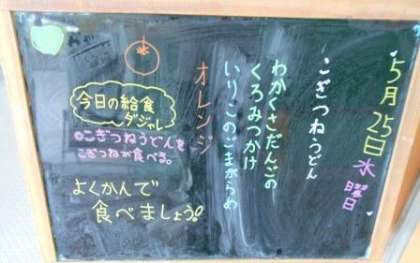 5月25日水曜日
こぎつねうどん
わかくさだんごの
くろみつかけ
いりこのごまがらめ
オレンジ
今日の給食
ダジャレー
こぎつねうどんを
こぎつねが食べる。
よくかんで
食べましょう!